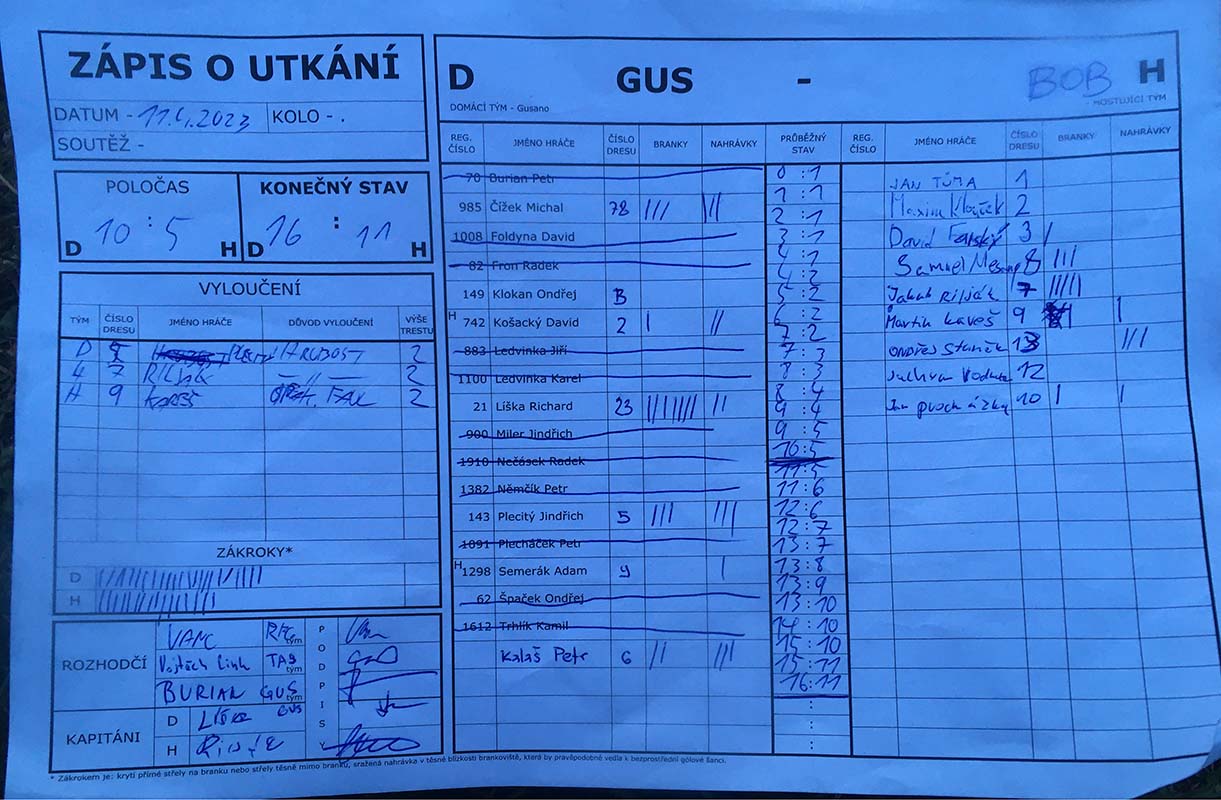 ZÁPIS O UTKÁNÍ
DATUM - 11.4.2023 KOLO - .
SOUTĚŽ -
POLOČAS
D 10 : 5 H
KONEČNÝ STAV
D 16 : 11 H
VYLOUČENÍ
TÝM ČÍSLO DRESU JMÉNO HRÁČE DŮVOD VYLOUČENÍ VÝŠE TRESTU
D 5 HRUBOST 2
7 RILJAK -//- 2
H 9 2
ZÁKROKY*
D
H
ROZHODČÍ
VANC tým
Vojtěch Linh TAB tým
BURIAN GUS tým
PODPISY
KAPITÁNI
D LÍŠKA GUS
H
D GUS - BOB H
DOMÁCÍ TÝM - Gusano - HOSTUJÍCÍ TÝM
REG. ČÍSLO JMÉNO HRÁČE ČÍSLO DRESU BRANKY NAHRÁVKY PRŮBĚŽNÝ STAV REG. ČÍSLO JMÉNO HRÁČE ČÍSLO DRESU BRANKY NAHRÁVKY
70 Burian Petr
985 Čížek Michal 78 /// //
1008 Foldyna David
82 Fron Radek
149 Klokan Ondřej B
H 742 Košacký David 2 / //
883 Ledvinka Jiří
1100 Ledvinka Karel
21 Líška Richard 23 /////// //
900 Miler Jindřich
1910 Nečásek Radek
1382 Němčík Petr
143 Plecitý Jindřich 5 /// ///
1091 Plecháček Petr
H 1298 Semerák Adam 9 /
62 Špaček Ondřej
1612 Trhlík Kamil
Kalaš Petr 6 // ///
0 : 1
1 : 1
2 : 1
3 : 1
4 : 1
4 : 2
5 : 2
6 : 2
7 : 2
7 : 3
8 : 3
8 : 4
9 : 4
9 : 5
10 : 5
11 : 5
11 : 6
12 : 6
12 : 7
13 : 7
13 : 8
13 : 9
13 : 10
14 : 10
15 : 10
15 : 11
16 : 11
:
:
:
JAN TŮMA 1
Maxim 2
David 3 /
Samuel 8 ///
Jakub Riljak 7 /////
Martin Kareš 9 /
Ondřej Staněk 13 ///
12
Jan procházka 10 / /
* Zákrokem je: krytí přímé střely na branku nebo střely těsně mimo branku, sražená nahrávka v těsné blízkosti brankoviště, která by pravěpodobně vedla k bezprostřední gólové šanci.